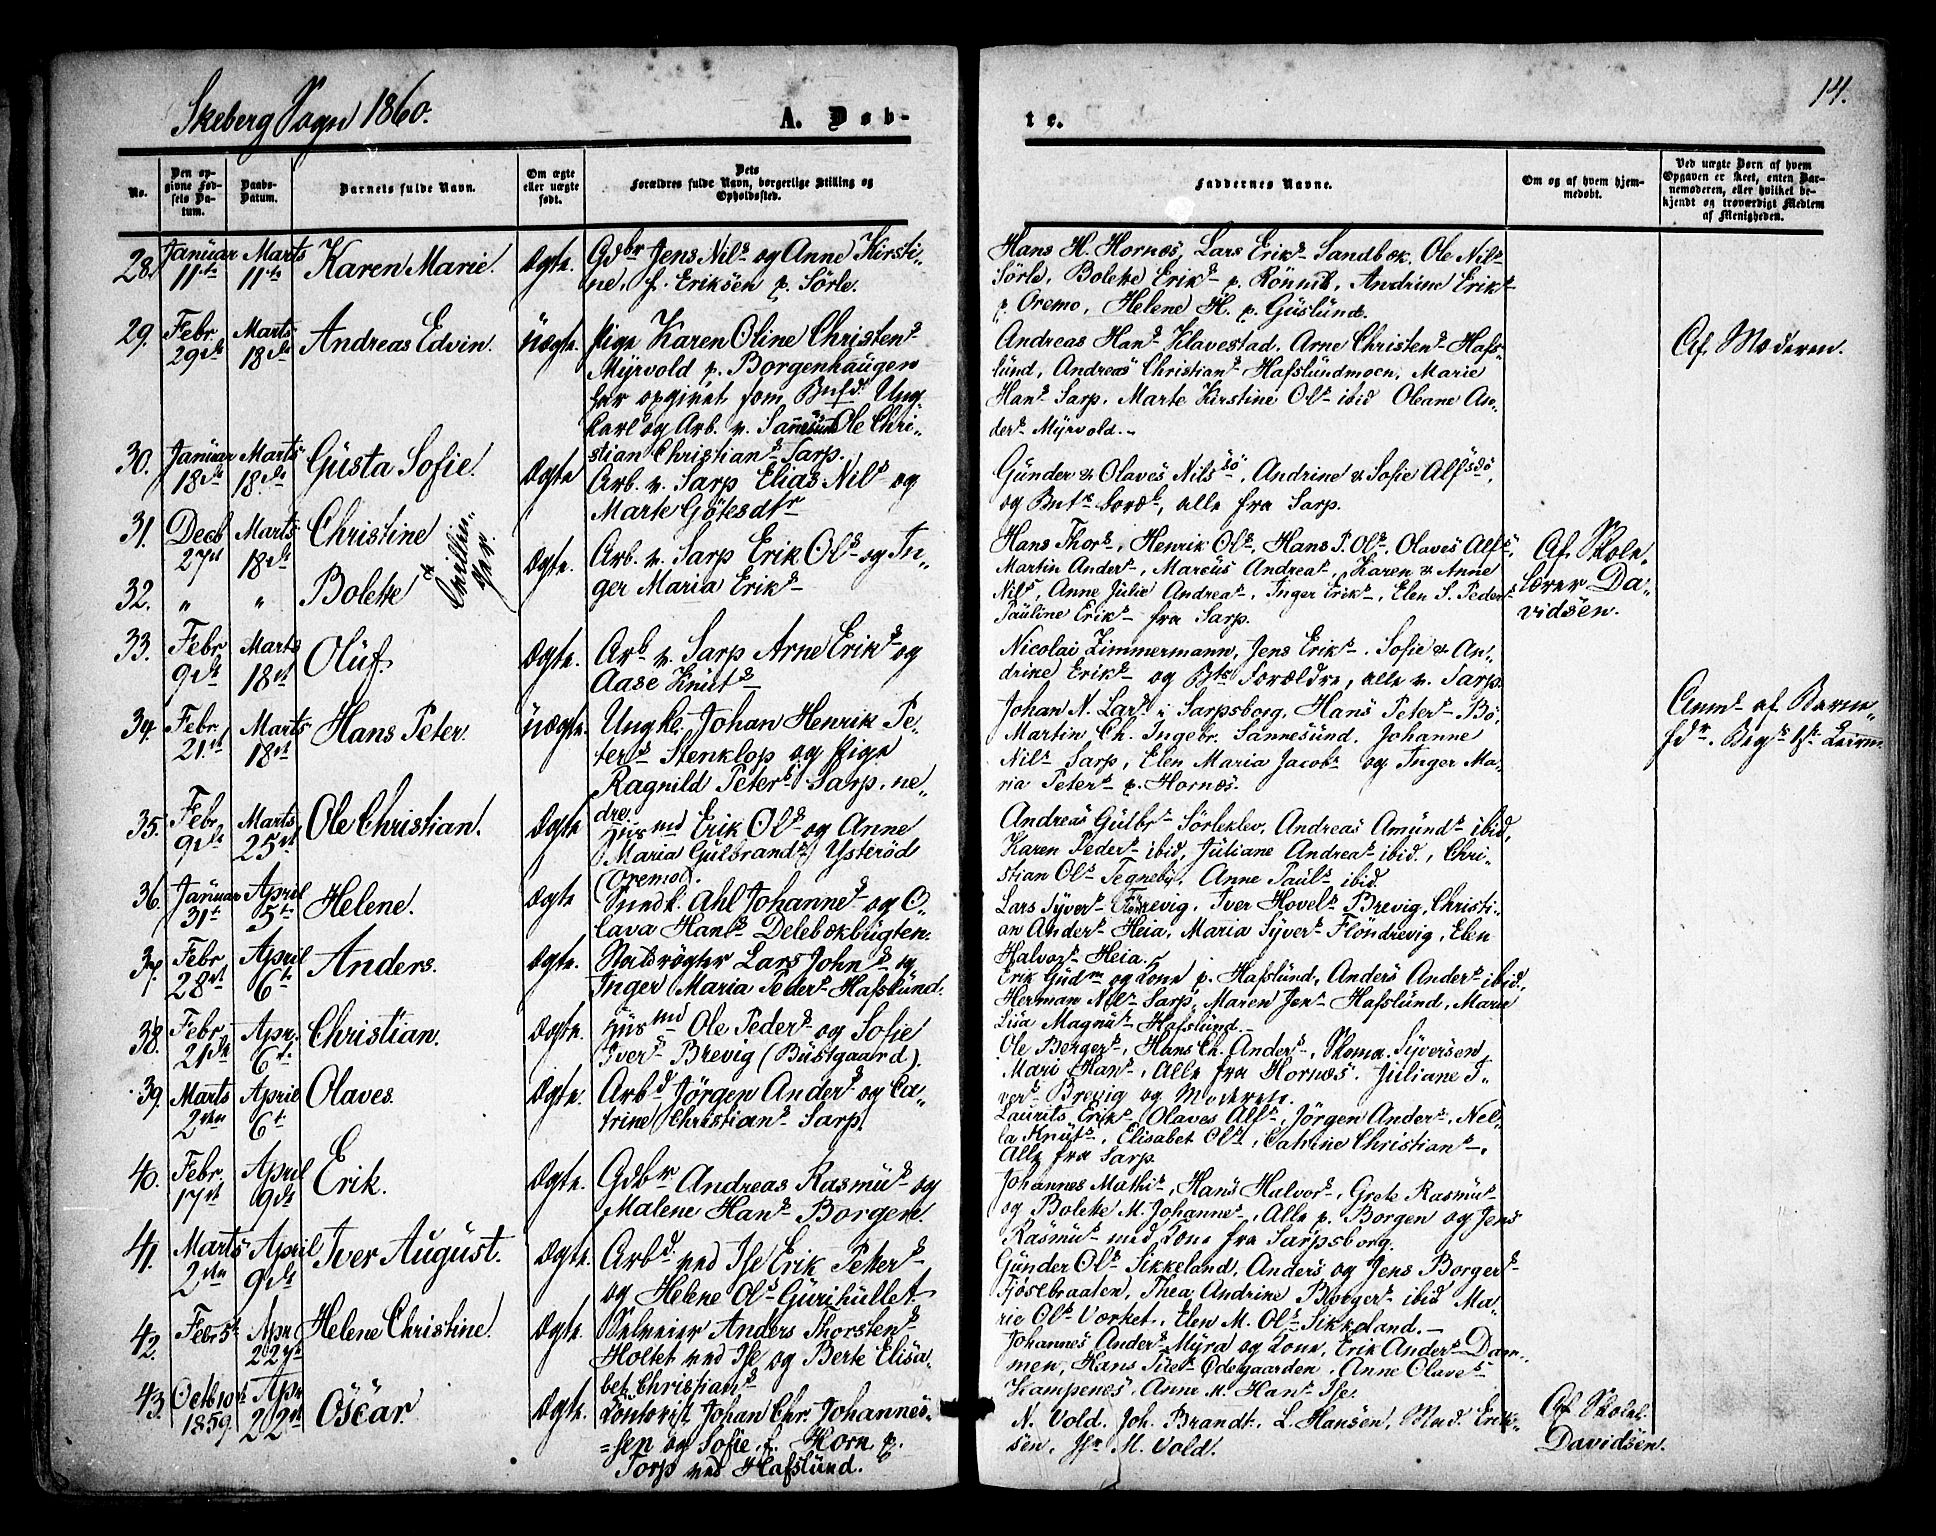 Skeberg Sogn 1860.
A. Døb-
te.
14.
No.
Den op-
givne Fød-
sels Da-
tum.
Daabs-
Datum.
Barnets fulde Navn.
Om ægte
eller uægte
født.
Dets
Forældres fulde Navn, borgerlige Stilling og
Opholdssted.
Faddernes Navne.
Om og af hvem hjem-
medøbt.
Ved uægte Børn af hvem
Opgaven er skeet, enten Bar-
nemoderen, eller hvilket be-
kjendt og troværdigt Medlem
af Menigheden.
28. Januar Marts Karen Marie. Ægte. Gdbr Jens Nils og Anne Kirsti-
11te 11te ne, f. Eriksen p. Sörle.
Hans H. Hornæs, Lars Eriks Sandbæk, Ole Nils
Sörle, Bolette Eriks p. Rönnik, Andrine Eriks
p. Oremo, Helene H. p. Guslund.
29. Febr. Marts Andreas Edvin. Uægte. Pige Karen Oline Christens
29de 18de Myrvold p. Borgenhaugen
har opgivet som Bnfdr Ung-
karl og Arb. v. Sannesund Ole Chri-
stian Christians Sarp.
Andreas Hans Klavestad, Arne Christens Hafs-
lund, Andreas Christians Hafslundmoen, Marie
Hans Sarp, Marte Kirstine Ols ibid Oleane An-
ders Myrvold.
Af Moderen.
30. Januar Marts Gusta Sofie. Ægte Arb. v. Sarp Elias Nils og
18de 18de Marte Götesdtr
Gunder & Olaves Nilssö, Andrine & Sofie Alfsdö,
og Bnts Foræl, alle fra Sarp.
31. Decb Marts Christine
27de 18de
Ægte. Arb. v. Sarp Erik Ols og In-
ger Maria Eriks
32. " " Bolette
Tvillin-
ger.
Hans Thors, Henrik Ols, Hans P. Ols, Olaves Alfs,
Martin Anders, Marcus Andreas, Karen & Anne
Nils, Anne Julie Andreas, Inger Eriks, Elen S. Peders
Pauline Eriks fra Sarp.
Af Skole-
lærer Da-
vidsen.
33. Febr Marts Oluf. Ægte. Arb. v. Sarp Arne Eriks og
9de 18de Aase Knuts
Nicolai Zimmermann, Jens Eriks, Sofie & An-
drine Eriks og Bts Forældre, alle v. Sarp.
34. Febr. Marts Hans Peter. Uægte. Ungk. Johan Henrik Pe-
21st 18de ters Stenklop og Pige
Ragnild Peters Sarp, ne-
dre.
Johan N. Lars i Sarpsborg, Hans Peters Bö,
Martin Ch. Ingebr. Sannesund, Johanne
Nils Sarp, Elen Maria Jacobs og Inger Ma-
ria Peters p. Hornæs.
Anm. af Barne-
fdr.
35. Febr. Marts Ole Christian. Ægte Husmd Erik Ols og Anne
9de 25de Maria Gulbrands Ysteröd
(Oremo).
Andreas Gulbr Sörleklev, Andreas Amunds ibid,
Karen Peders ibid, Juliane Andreas ibid., Chri-
stian Ols Tegneby, Anne Pauls ibid.
36. Januar April Helene. Ægte Indk. Ahl Johannes og O-
31t 5t lava Hans Delebækbugten.
Lars Syvers Flöndrevig, Iver Hovels Brevig, Christi-
an Anders Heia, Maria Syvers Flöndrevig, Elen
Halvors Heia.
37. Febr. April Anders. Ægte. Staldrögter Lars Johns og
28de 6te Inger Maria Peders Hafslund.
Erik Gudm og Kone p. Hafslund, Anders Anders ibid,
Herman Nils Sarp, Maren Jens Hafslund, Marie
Lisa Magnus Hafslund.
38. Febr. Apr. Christian. Ægte. Husmd Ole Peders og Sofie
21de 6te Ivers Brevig (Bustgaard).
Ole Bergers, Hans Ch. Anders, Skoma. Syversen
Mari Hans, Alle fra Hornæs. Juliane I-
vers Brevig og Moderen.
39. Marts April Olaves. Ægte. Arbd Jörgen Anders og Ca-
2den 6t trine Christians Sarp.
Laurits Eriks, Olaves Alfs, Jörgen Anders, Nel-
la Knuts, Elisabet Ols, Catrine Christians,
Alle fra Sarp.
40. Febr. April Erik. Ægte. Gdbr Andreas Rasmus og
17de 9de Malene Hans Borgen.
Johannes Mathis, Hans Halvors, Grete Rasmus
og Bolette M. Johannes, Alle p. Borgen og Jens
Rasmus med Kone fra Sarpsborg.
41. Marts April Iver August. Ægte. Arbd. ved Ise Erik Peters
2den 9de og Helene Ols Gurihullet.
Gunder Ols Sikkeland, Anders og Jens Borgers
Fjösebraaten, Thea Andrine Borgers ibid Ma-
rie Ols Vorket, Elen M. Ols Sikkeland.
42. Febr 5t Apr. Helene Christine. Ægte. Selveier Anders Thorstens
22de Holtet ved Ise og Berte Elisa-
bet Christians
Johannes Anders Myra og Kone, Erik Anders Dam-
men, Hans Öiels Ödegaarden, Anne Olaves
Kampenes, Anne M. Hans Ise.
43. Octb 10de Apr. Oscar. Ægte. Kontorist Johan Chr. Johannes-
1859. 22de sen og Sofie, f. Horn p.
Torp ved Hafslund.
N. Vold, Joh. Brandt, L. Hansen, Mad. Erik-
sen, Jfr M. Vold.
Af Skolel.
Davidsen.